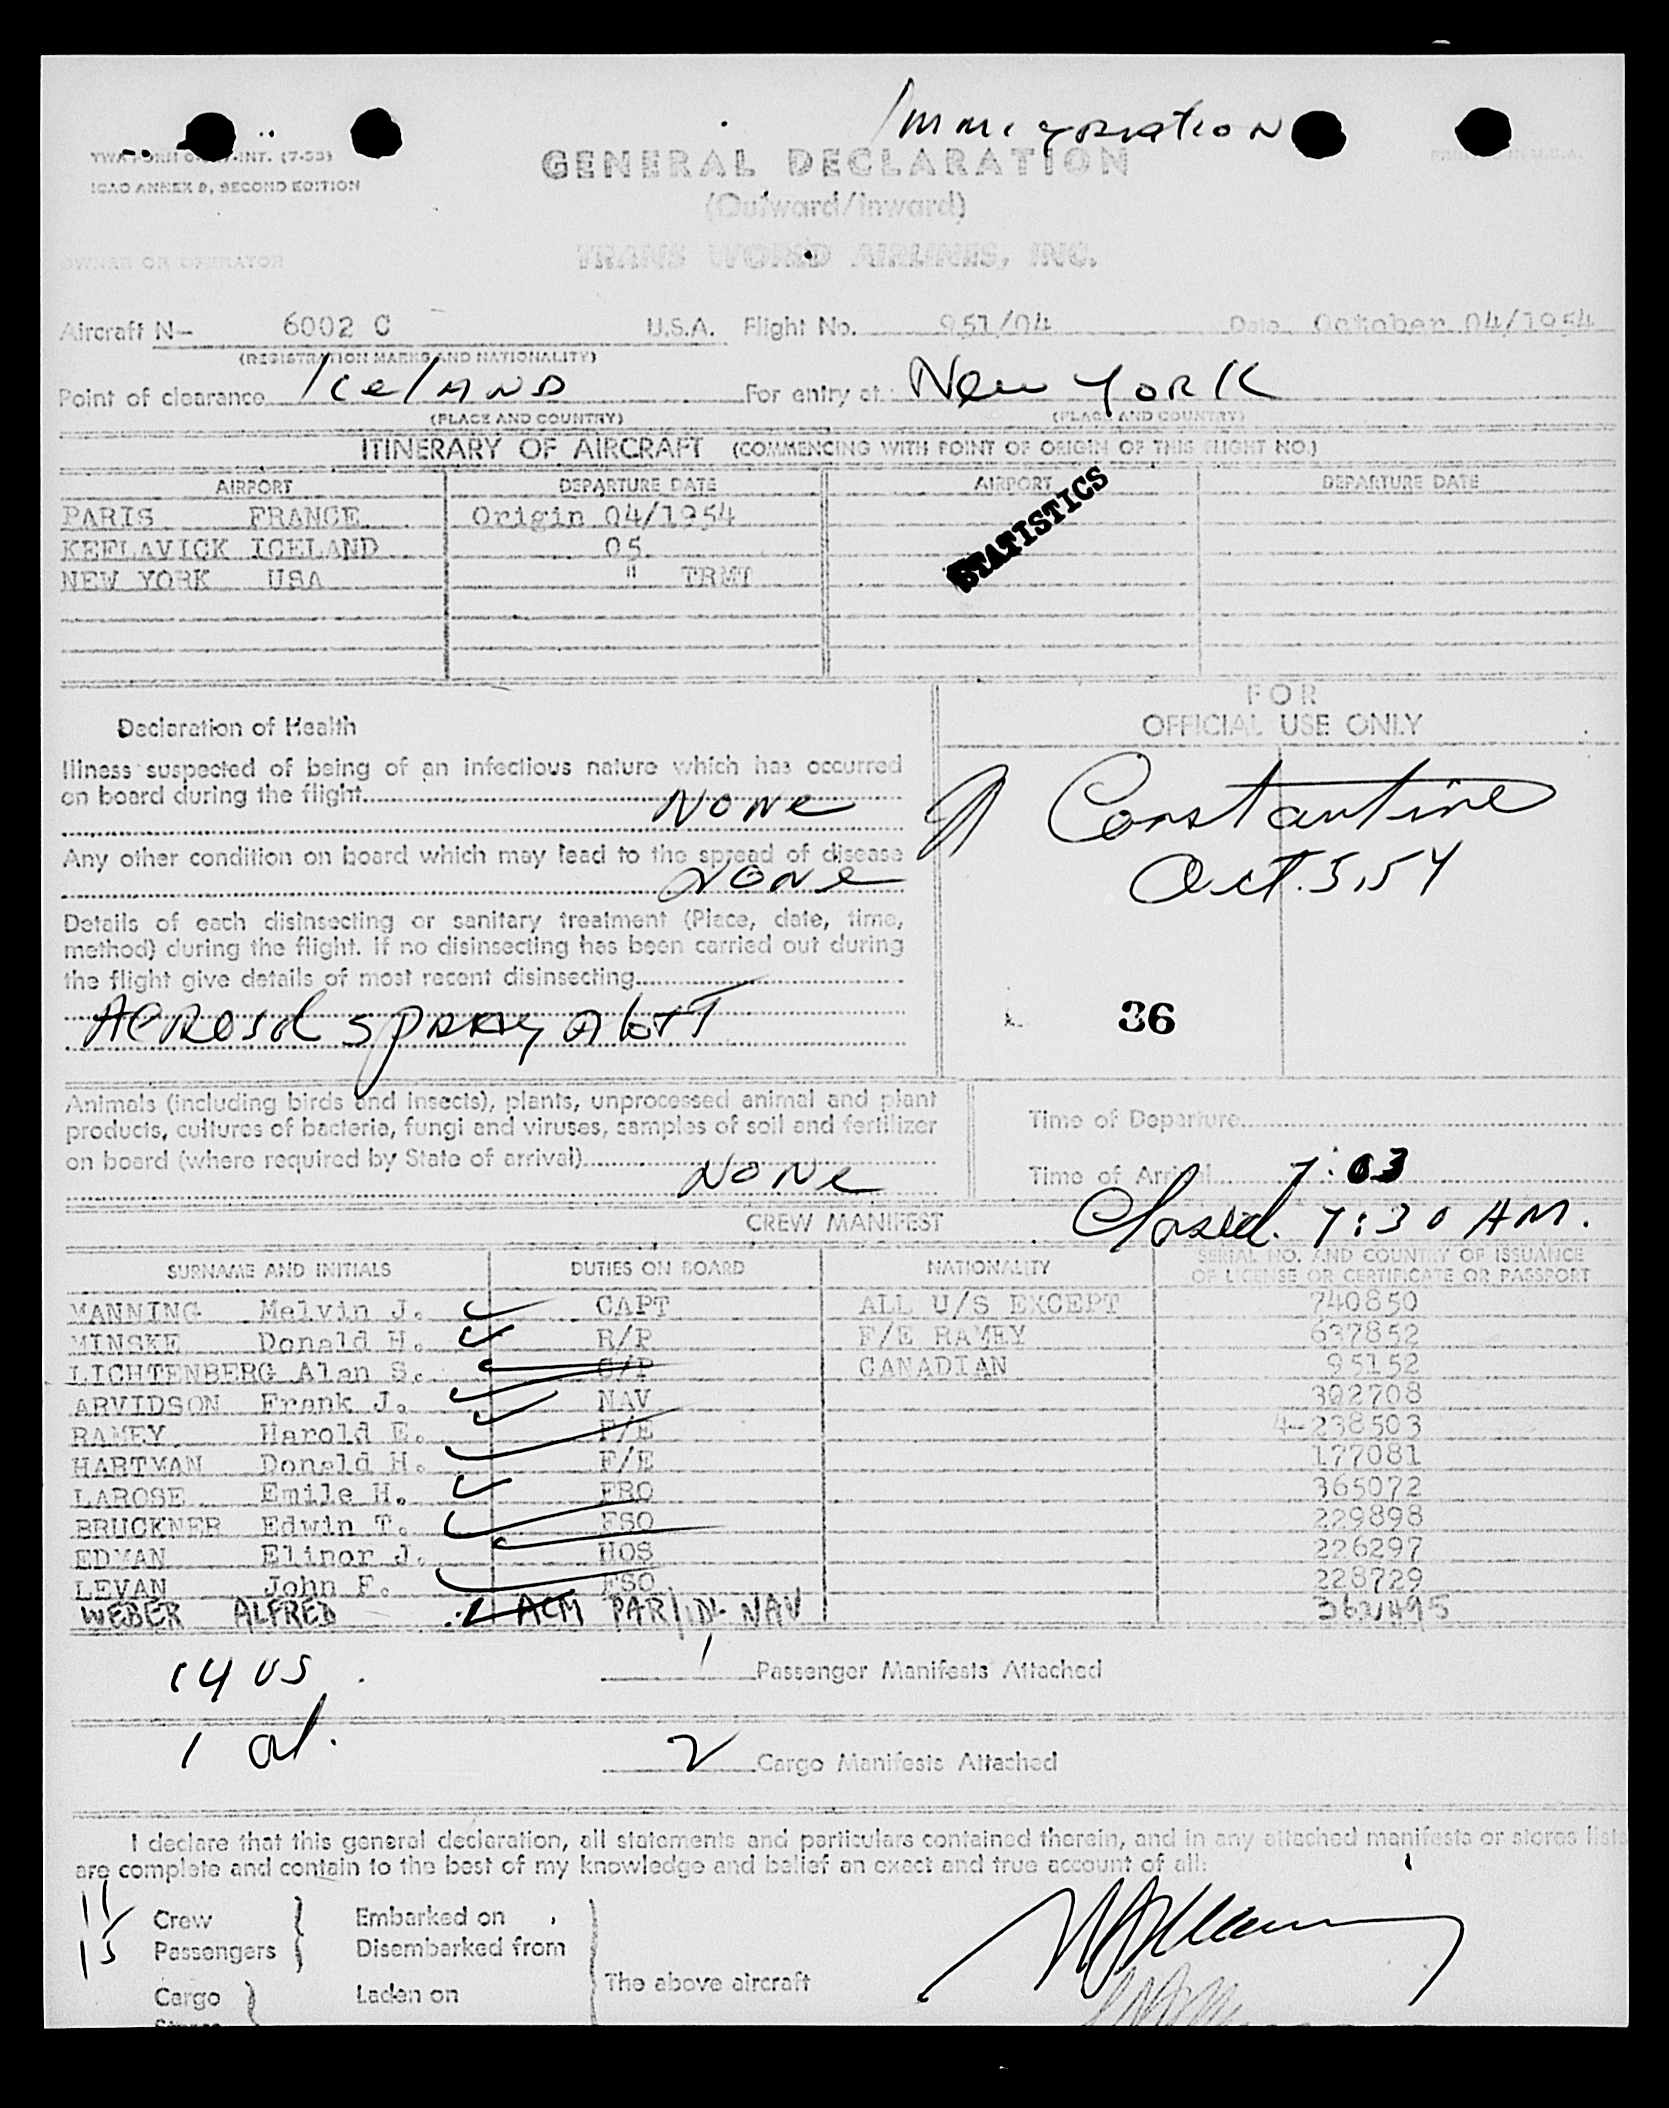 Immigration
TWA FORM -INT. (7-53)
PRINTED IN U.S.A.
ICAO ANNEX 9, SECOND EDITION
GENERAL DECLARATION
(Outward/Inward)
OWNER OR OPERATOR
TRANS WORLD AIRLINES, INC.
Aircraft N- 6002 C U.S.A. Flight No. 951/04 Date October 04/1954
(REGISTRATION MARKS AND NATIONALITY)
Point of clearance Iceland For entry at New York
(PLACE AND COUNTRY) (PLACE AND COUNTRY)
ITINERARY OF AIRCRAFT (COMMENCING WITH POINT OF ORIGIN OF THIS FLIGHT NO.)
AIRPORT DEPARTURE DATE AIRPORT DEPARTURE DATE
PARIS FRANCE Origin 04/1954
KEFLAVICK ICELAND 05
NEW YORK USA " TRMT
STATISTICS
FOR
OFFICIAL USE ONLY
Declaration of Health
Illness suspected of being of an infectious nature which has occurred
on board during the flight None
Any other condition on board which may lead to the spread of disease
None
Constantine
Oct. 5, 54
Details of each disinsecting or sanitary treatment (Place, date, time,
method) during the flight. If no disinsecting has been carried out during
the flight give details of most recent disinsecting
Aerosol spray aloft
36
Animals (including birds and insects), plants, unprocessed animal and plant
products, cultures of bacteria, fungi and viruses, samples of soil and fertilizer
on board (where required by State of arrival)
None
Time of Departure
Time of Arrival 7:03
Closed. 7:30 AM.
CREW MANIFEST
SURNAME AND INITIALS DUTIES ON BOARD NATIONALITY SERIAL NO. AND COUNTRY OF ISSUANCE
OF LICENSE OR CERTIFICATE OR PASSPORT
MANNING Melvin J. CAPT ALL U/S EXCEPT 740850
MINSKE Donald H. R/P F/E RAMEY 637852
LICHTENBERG Alan S. C/P CANADIAN 95152
ARVIDSON Frank J. NAV 302708
RAMEY Harold E. F/E 4-238503
HARTMAN Donald H. F/E 177081
LAROSE Emile H. FRO 365072
BRUCKNER Edwin T. FSO 229898
EDMAN Elinor J. HOS 226297
LEVAN John F. FSO 228729
WEBER ALFRED ACM PAR/IDL NAV
14 US
1 Passenger Manifests Attached
1 al.
2 Cargo Manifests Attached
I declare that this general declaration, all statements and particulars contained therein, and in any attached manifests or stores lists
are complete and contain to the best of my knowledge and belief an exact and true account of all:
11 Crew Embarked on
15 Passengers Disembarked from
The above aircraft
Cargo Laden on
Stores